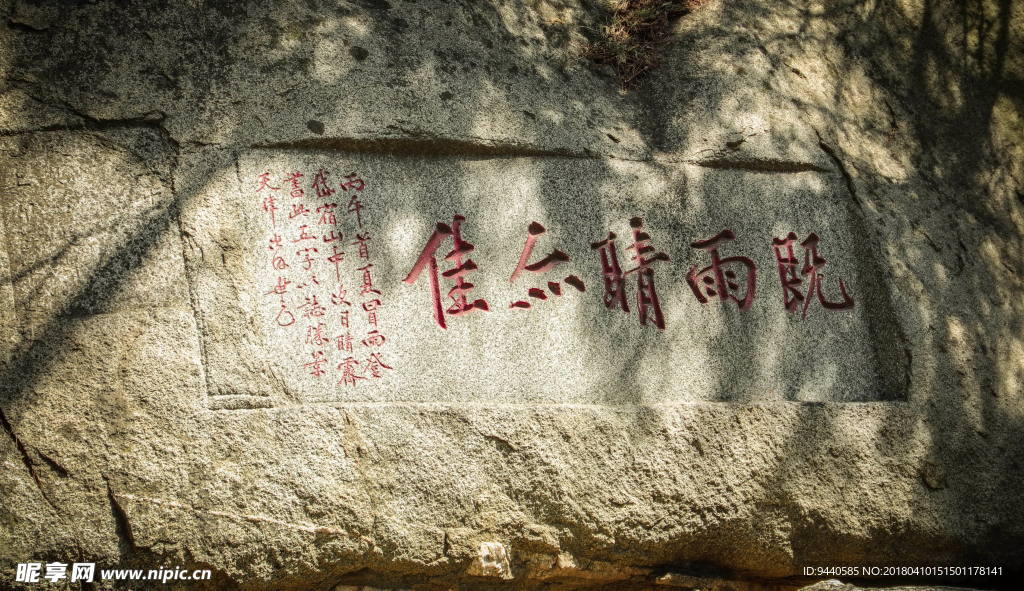 既雨晴亦佳
丙午首夏冒雨登
岱宿山中次日晴霽
書此五字以誌勝景
天津
昵享网 www.nipic.cn
ID:9440585 NO:20180410151501178141